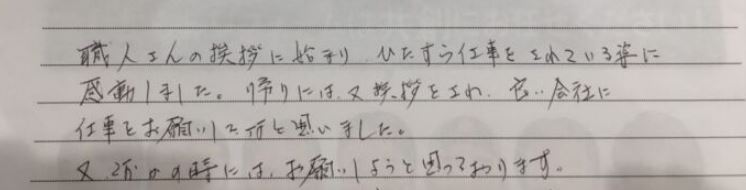 職人さんの挨拶に始まり、ひたすら仕事をされている姿に
感動しました。帰りには、又挨拶をされ、良い会社に
仕事をお願いして行と思いました。
又、何かの時には、お願いしようと思っております。